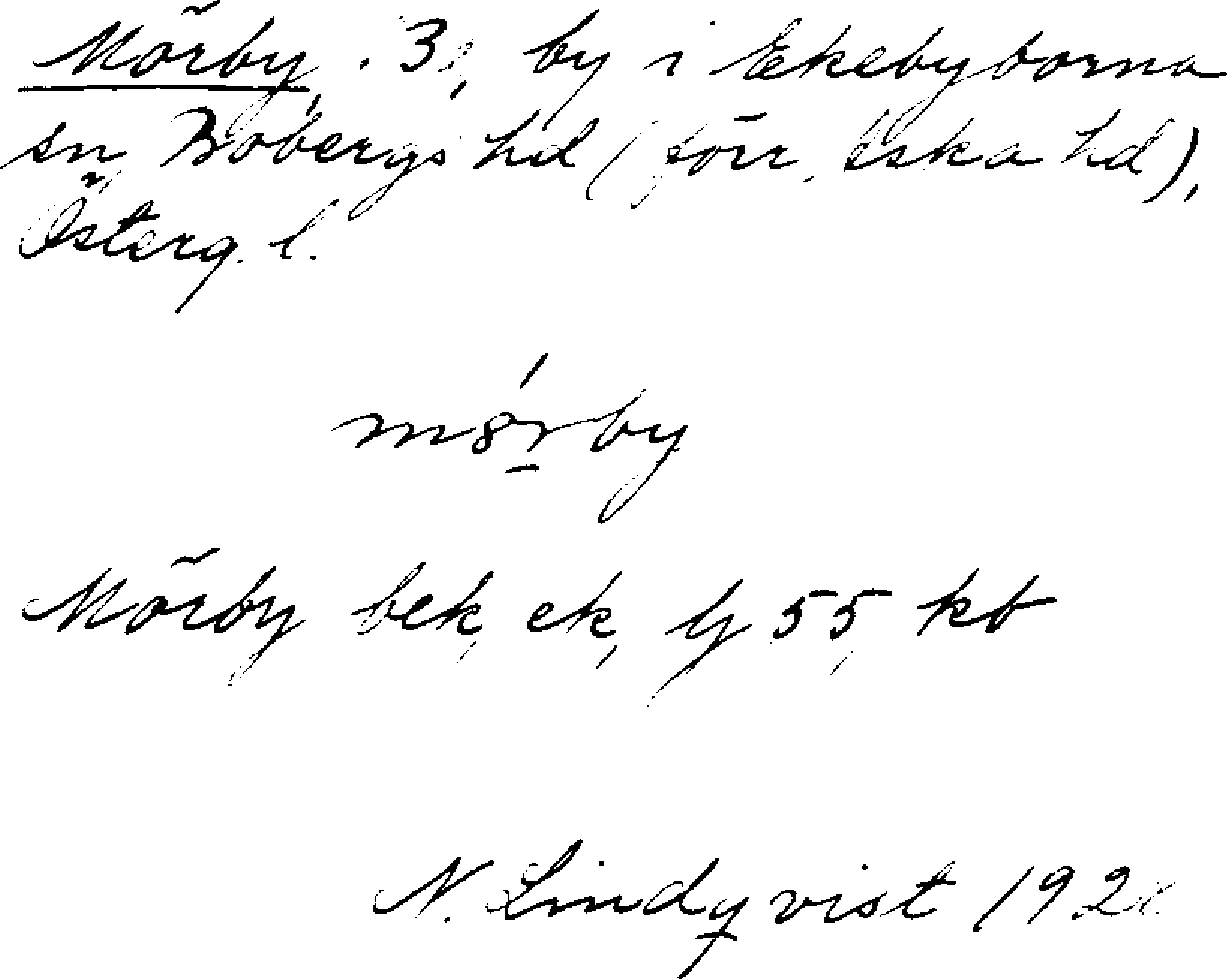 Mörby, 3, by i Ekebyborna
sn, Bobergs hd (förr Aska hd),
Österg. l.
mörby
Mörby bek, ek, ly 55, kb
N. Lindqvist 192